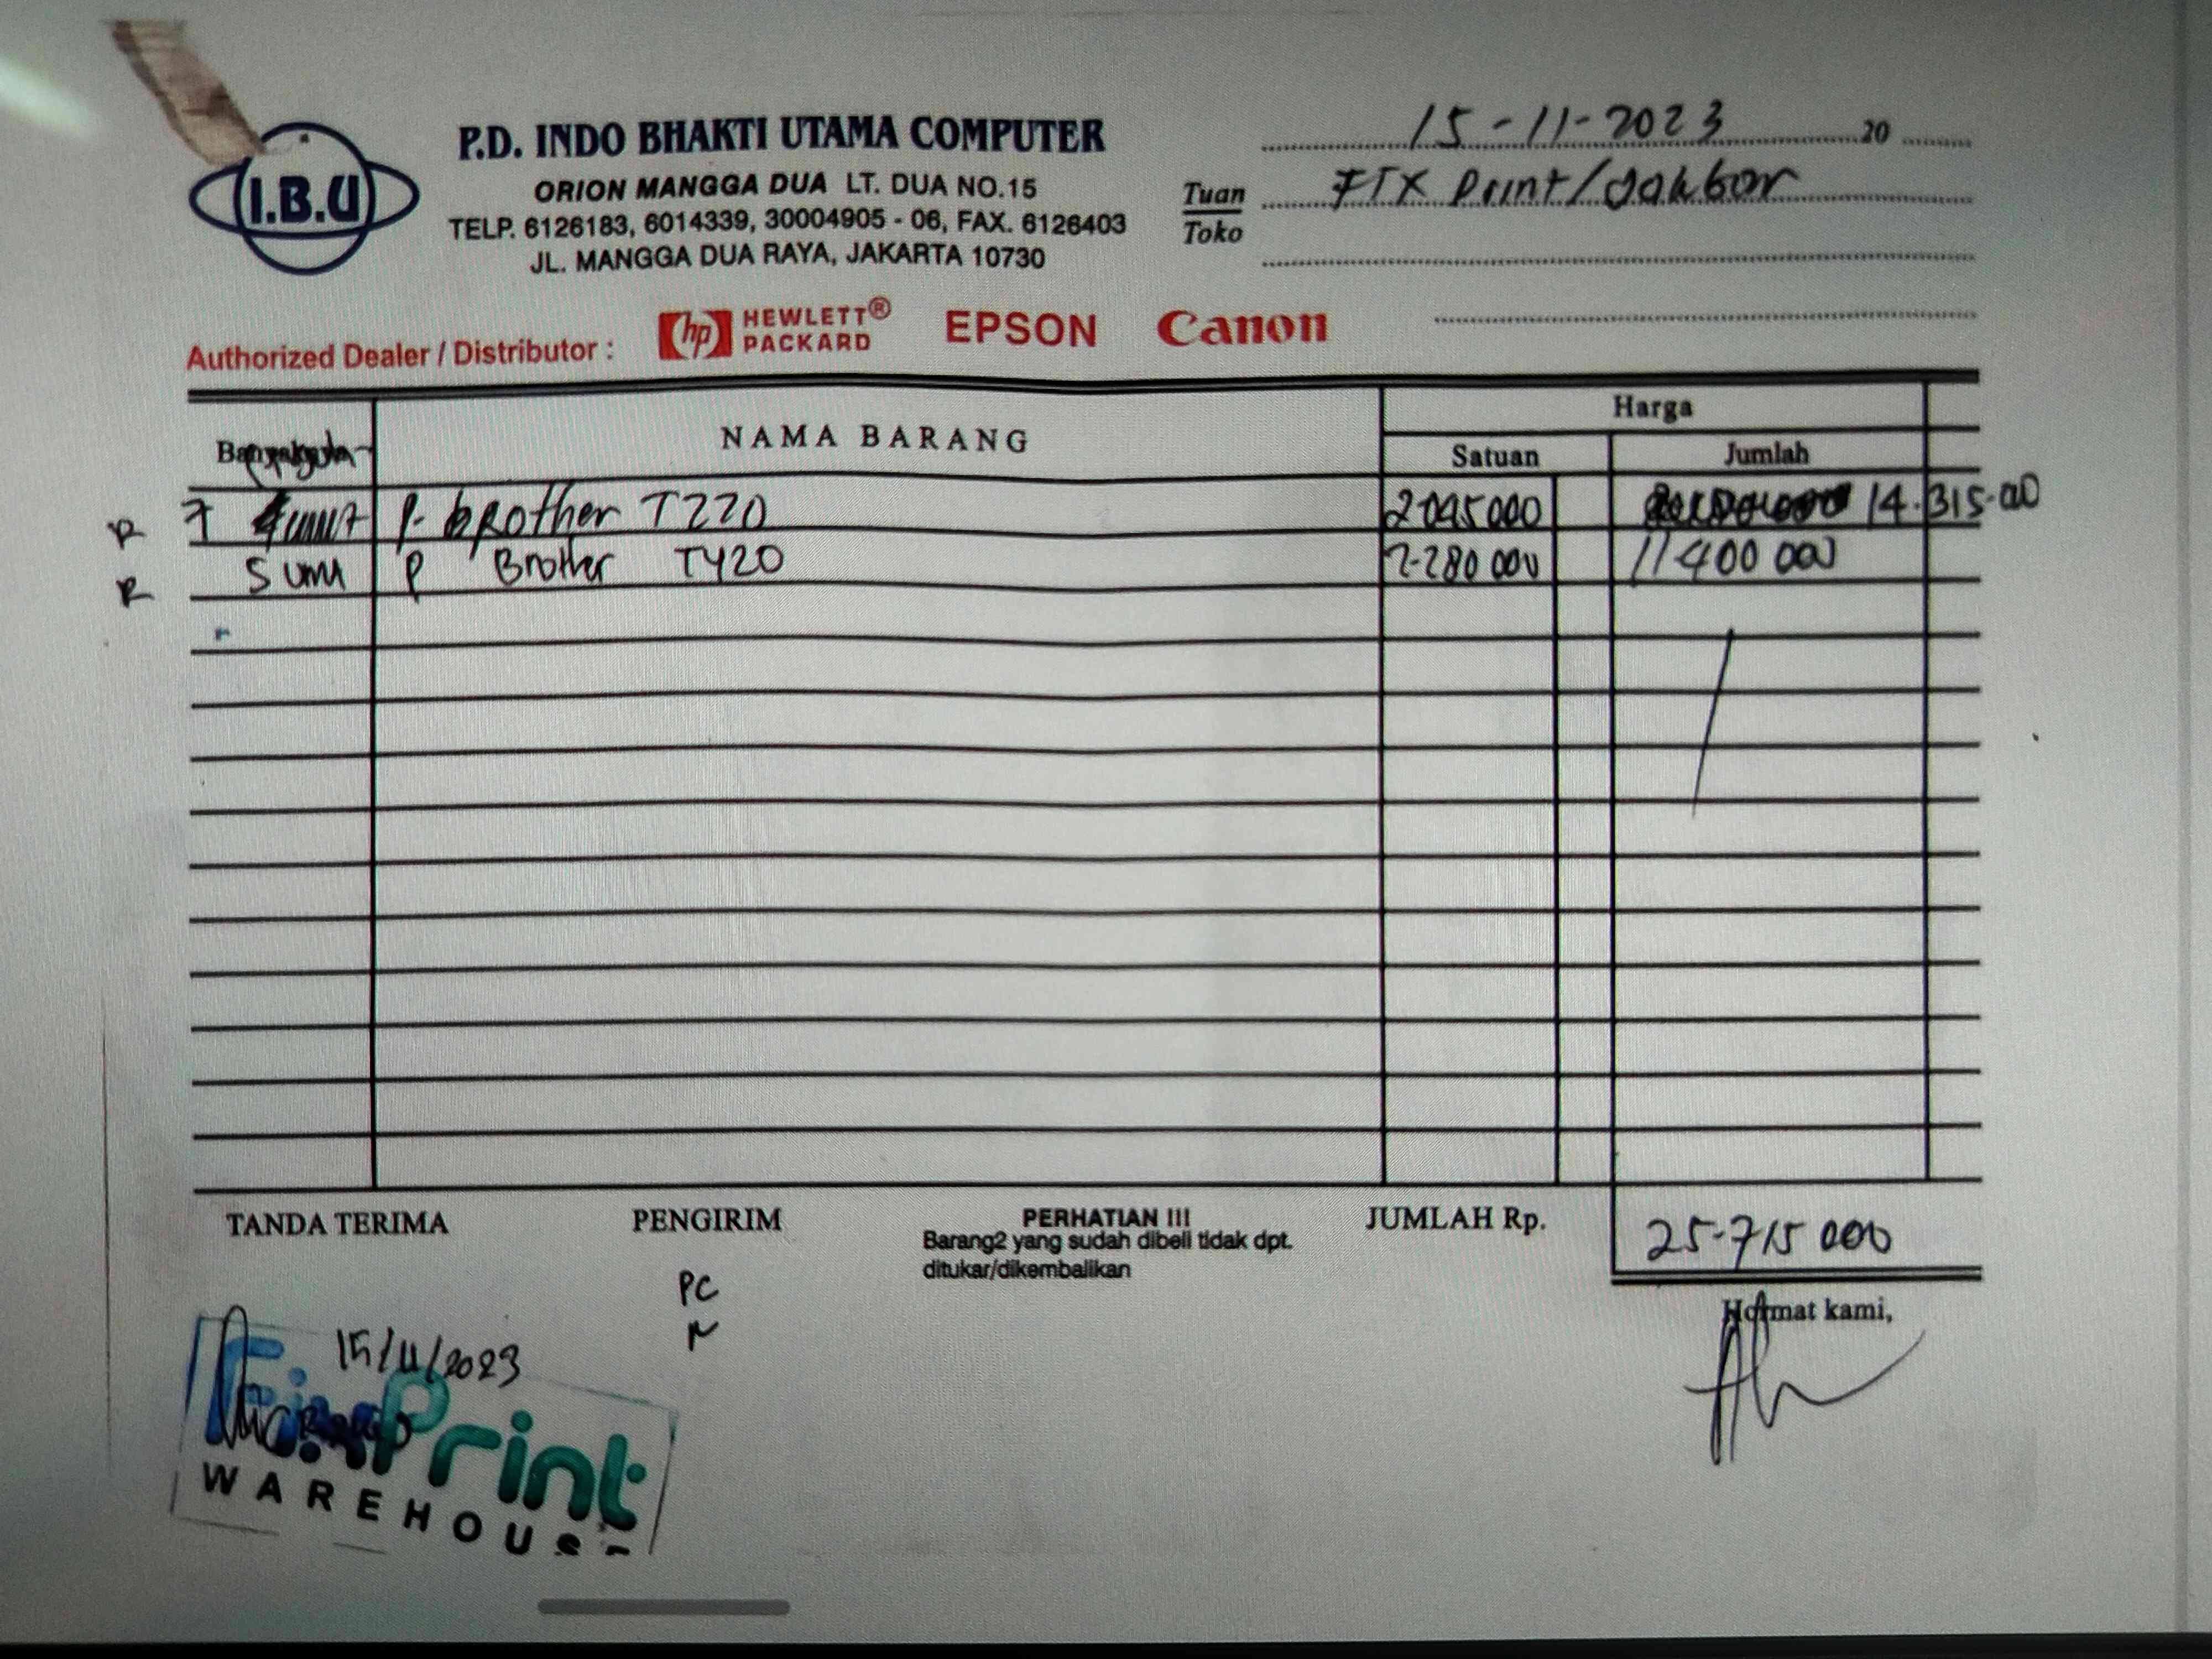 I.B.U
P.D. INDO BHAKTI UTAMA COMPUTER
ORION MANGGA DUA LT. DUA NO.15
TELP. 6126183, 6014339, 30004905 - 06, FAX. 6126403
JL. MANGGA DUA RAYA, JAKARTA 10730
15-11-2023 20
Tuan
Toko
FIX Print/Jakbar
Authorized Dealer / Distributor : hp HEWLETT® PACKARD EPSON Canon
NAMA BARANG Harga
Satuan Jumlah
R 7 P. brother T220 2045000 14.315.00
R 5 unit P Brother T420 2.280 000 11 400 000
TANDA TERIMA PENGIRIM PERHATIAN !!! JUMLAH Rp. 25.715 000
Barang2 yang sudah dibeli tidak dpt.
ditukar/dikembalikan
PC
Hormat kami,
15/11/2023
FixPrint
WAREHOUSE